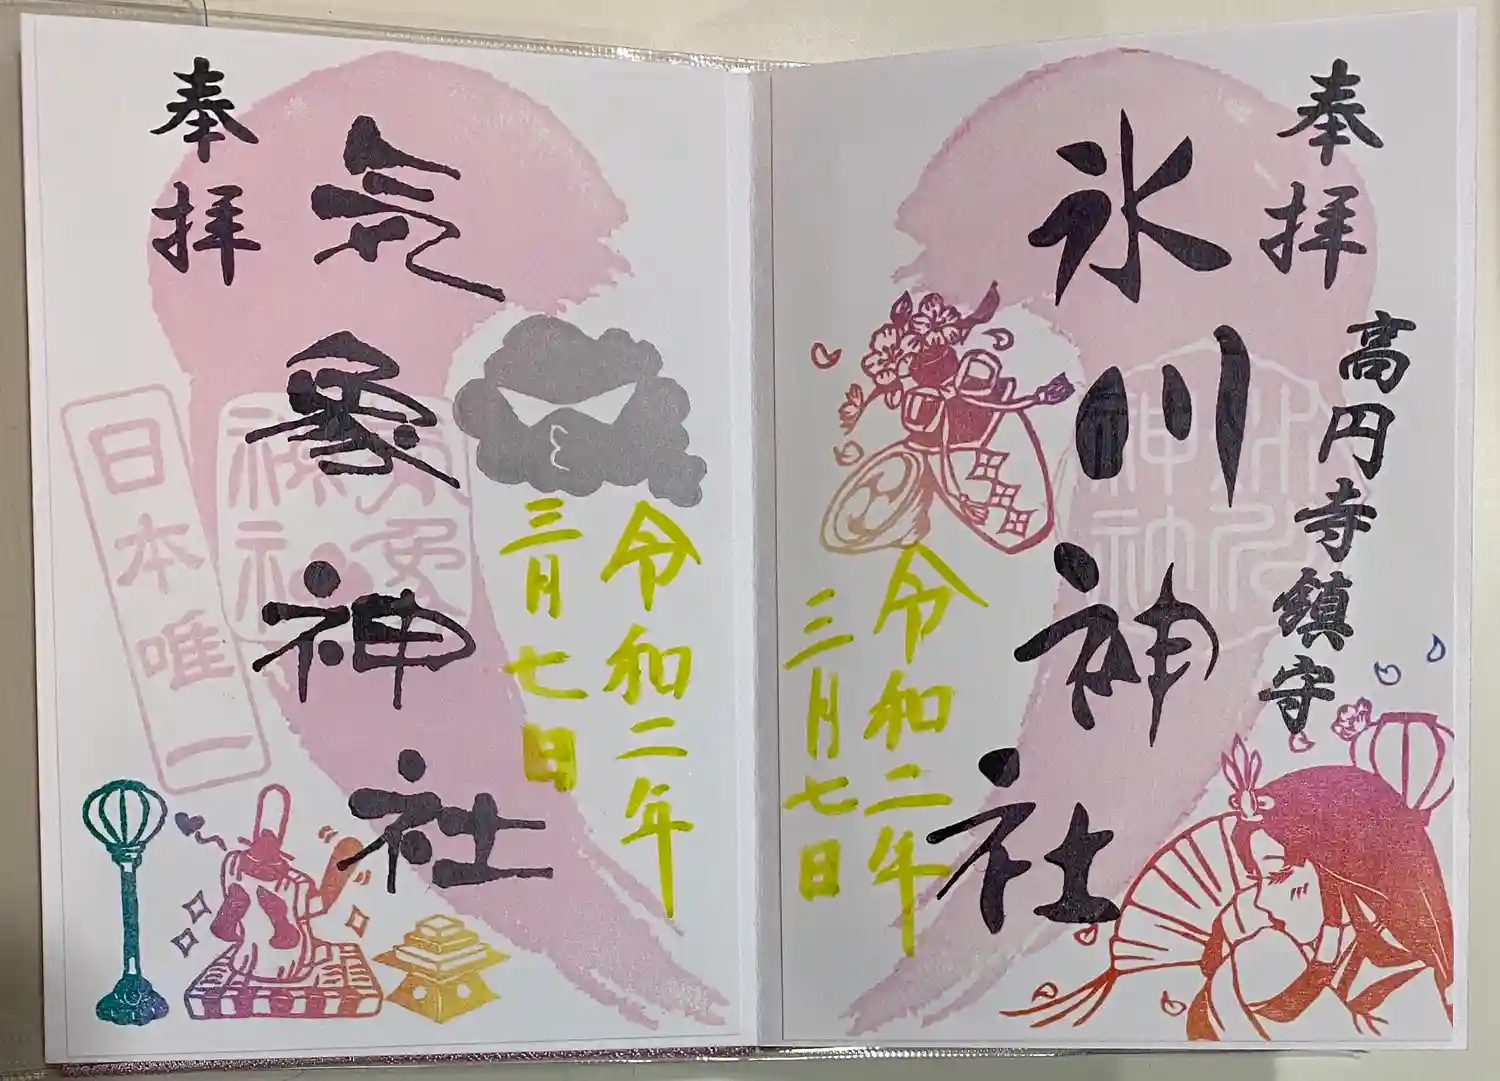 奉拝
高円寺鎮守
氷川神社
令和二年
三月七日
奉拝
気象神社
令和二年
三月七日
日本唯一